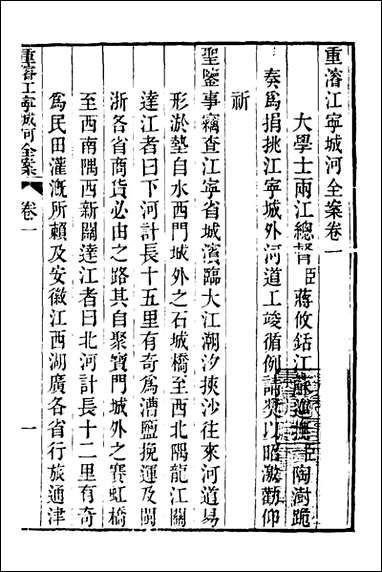 重濬江寧城河全案卷一
大學士兩江總督臣蔣攸銛江蘇巡撫臣陶澍跪
奏爲捐挑江寧城外河道工竣循例請獎以昭激勸仰
祈
聖鑒事竊查江寧省城濱臨大江潮汐挾沙往來河道易
形淤墊自水西門城外之石城橋至西北隅龍江關
達江者曰下河計長十五里有奇爲漕鹽挽運及閩
浙各省商貨必由之路其自聚寶門城外之賽虹橋
至西南隅西新關達江者曰北河計長十二里有奇
爲民田灌溉所賴及安徽江西湖廣各省行旅通津
重濬江寧城河全案
卷一
一